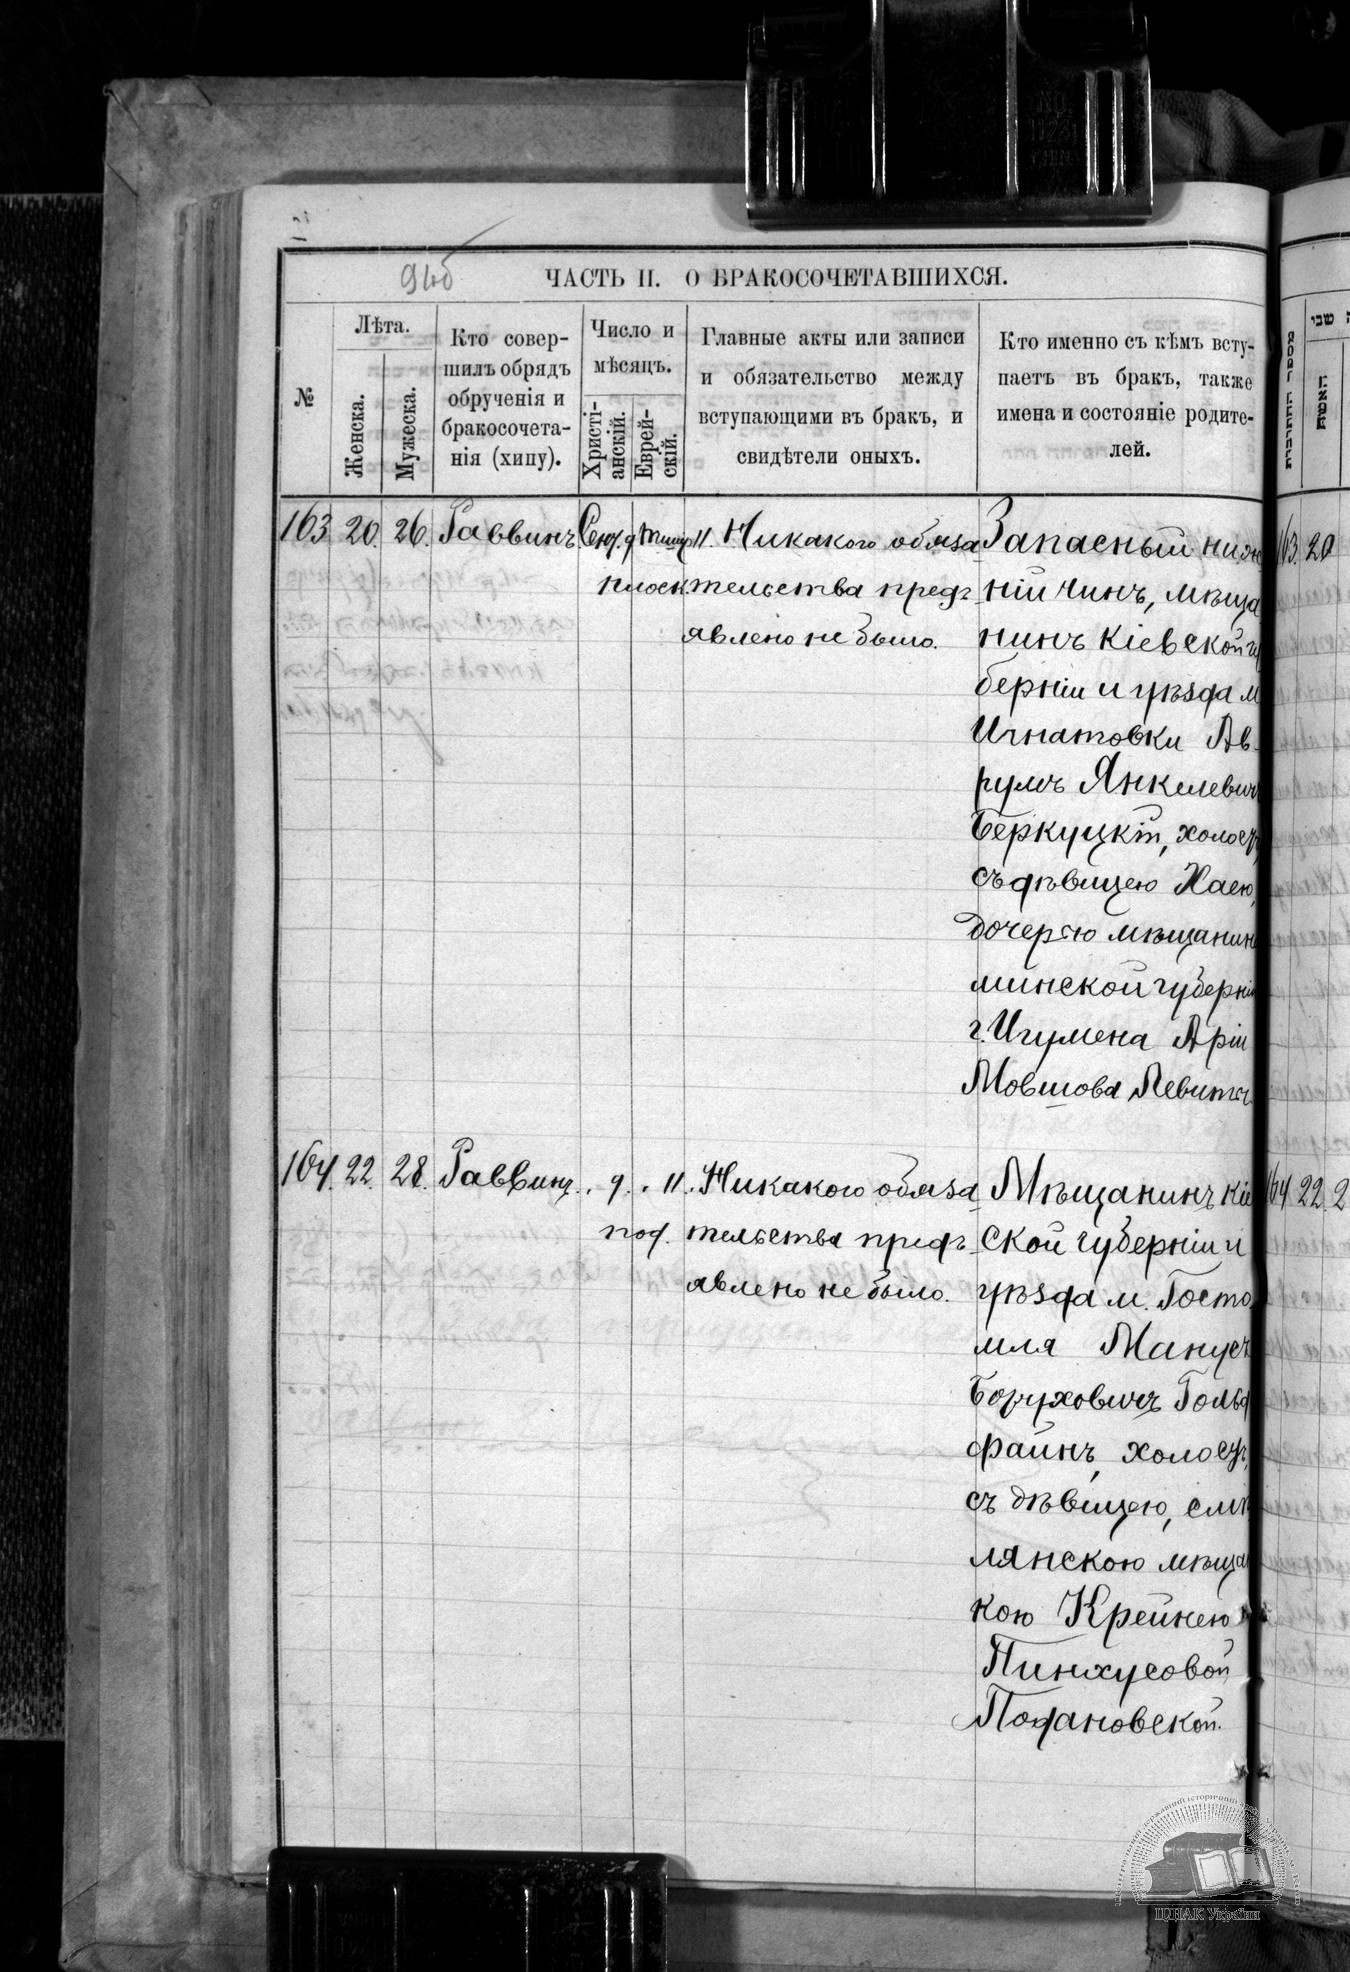 94об
ЧАСТЬ II. О БРАКОСОЧЕТАВШИХСЯ.
№
Лѣта.
Женска.
Мужеска.
Кто совер-
шилъ обрядъ
обрученія и
бракосочета-
нія (хипу).
Число и
мѣсяцъ.
Христі-
анскій.
Еврей-
скій.
Главные акты или записи
и обязательство между
вступающими въ бракъ, и
свидѣтели оныхъ.
Кто именно съ кѣмъ всту-
паетъ въ бракъ, также
имена и состояніе родите-
лей.
163 20. 26. Раввинъ. Сент. 9 Тишр 11. Никакого обяза
тельства предъ-
явлено не было.
Запасный ниж
ній чинъ, мѣща
нинъ Кіевской гу
берніи и уѣзда м
Игнатовки Ав-
румъ Янкелевичъ
Беркуцкій, холостъ,
съ дѣвицею Хаею,
дочерью мѣщанина
минской губерніи
г. Игумена Арія
Мовшова Левита.
164. 22. 28. Раввинъ. . 9. . 11. Никакого обяза
тельства предъ-
явлено не было.
Мѣщанинъ Кіе
ской губерніи и
уѣзда м. Госто
мля Манусъ
Боруховичъ Гольд
файнъ, холостъ,
съ дѣвицею, смѣ
лянскою мѣщан
кою Крейнею
Пинхусовой
Поdановской.
האשה
163. 20
164 22. 2
ЦДІАК України